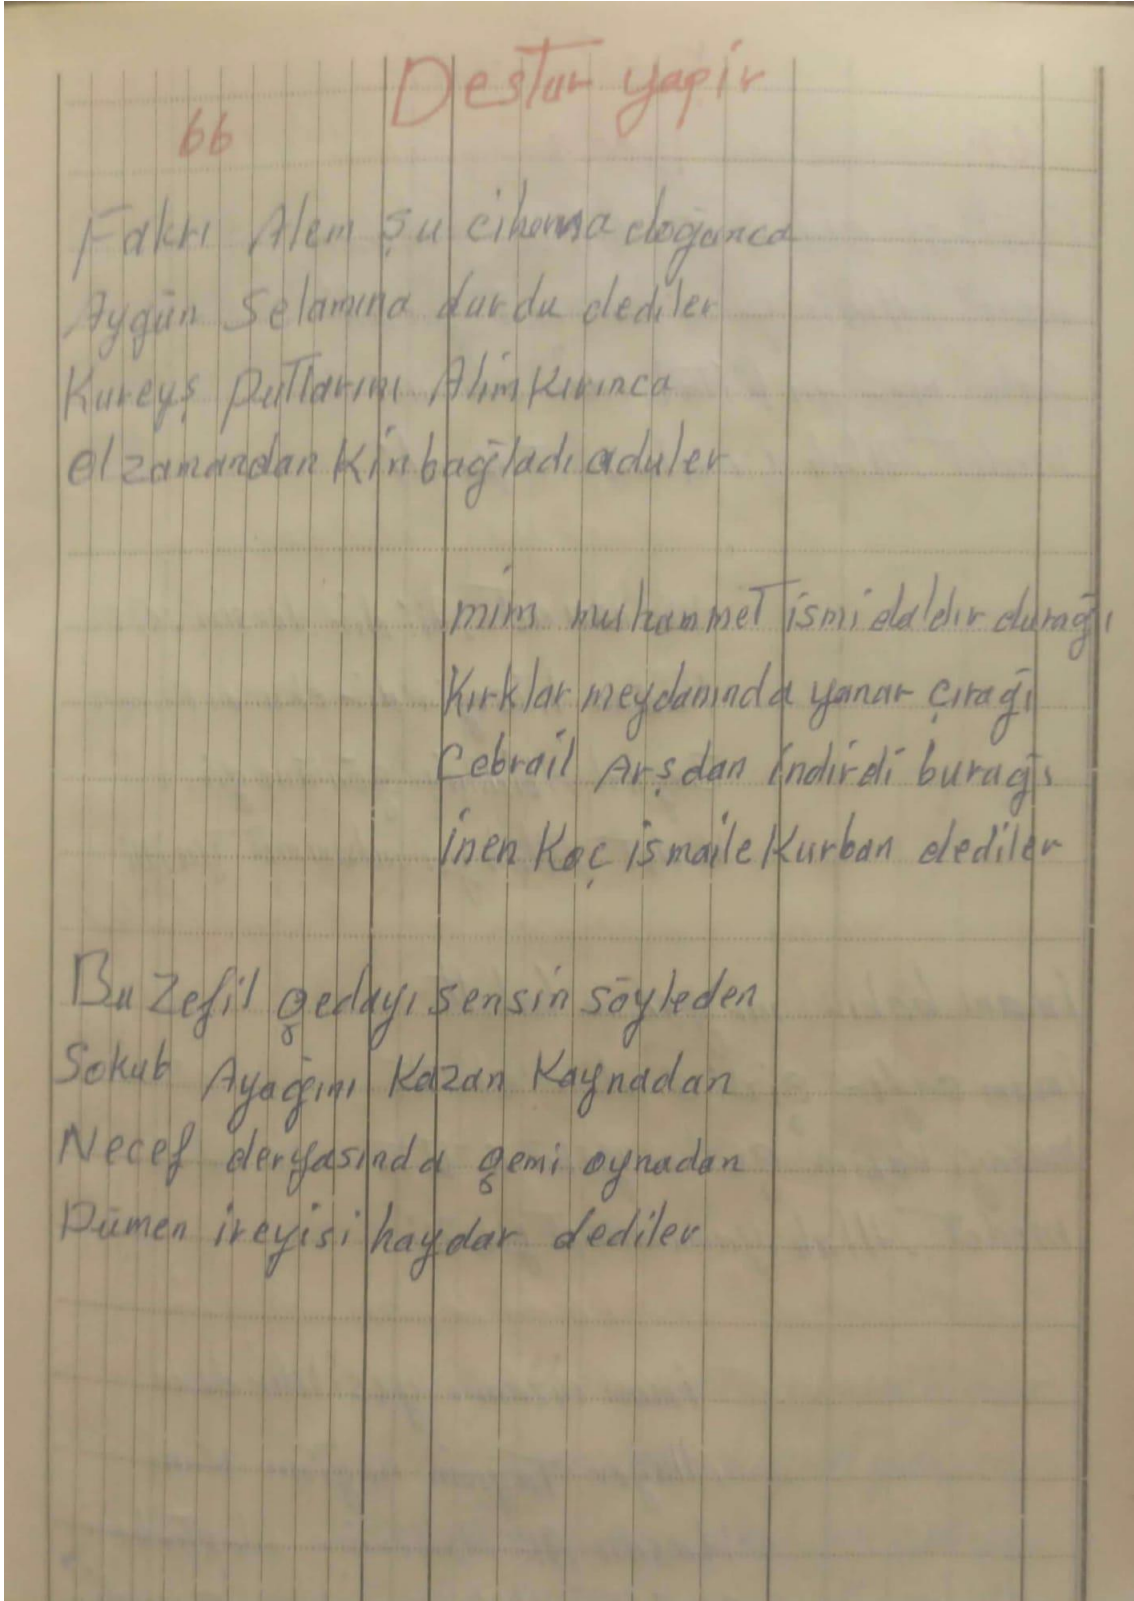 Destur yapir
66
Fakrı Alem şu cihana doğanca
Aygün Selamına durdu dediler
Kureyş putlarını Alim kırınca
elzamandan kin bağladı aduler
mim muhammet ismi daldır durağı
Kırklar meydanında yanar çırağı
Cebrail Arşdan indirdi burağı
inen Koç ismaile Kurban dediler
Bu Zefil gedayı sensin söyleden
Sokub Ayağını Kazan Kaynadan
Necef deryasında gemi oynadan
Dümen ireyisi haydar dediler